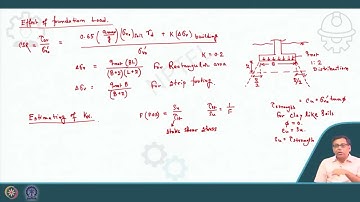 Effect of foundation Load.
CSR = τav / σ'vo = 0.65 (amax / g) (σvo)soil rd + K (Δσv) building / σ'vo
K = 0.2
Δσv = qnet (BL) / (B+z)(L+z) For Rectangular area
Δσv = qnet B / (B+z) For Strip footing
qnet
B
1:2
Distribution
Estimating of Kα.
F (FOS) = Su / τst
τst / Su = 1 / F
Static Shear Stress
τstrength = Cu + σv' tan φ
For Clay like Soils
φ = 0.
Cu = Su.
Su = τstrength